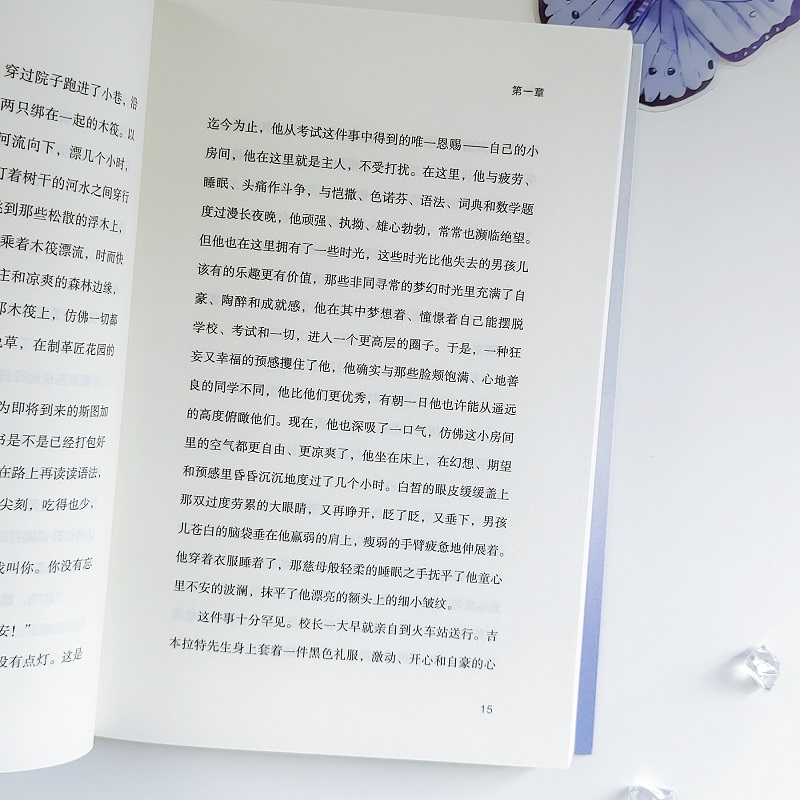 穿过院子跑进了小巷，沿
两只绑在一起的木筏。以
河流向下，漂几个小时，
打着树干的河水之间穿行
到那些松散的浮木上，
乘着木筏漂流，时而快
主和凉爽的森林边缘，
木筏上，仿佛一切都
草，在制革匠花园的
为即将到来的斯图加
书是不是已经打包好
在路上再读读语法，
尖刻，吃得也少，
叫你。你没有忘
安！”
没有点灯。这是
第一章
迄今为止，他从考试这件事中得到的唯一恩赐——自己的小
房间，他在这里就是主人，不受打扰。在这里，他与疲劳、
睡眠、头痛作斗争，与恺撒、色诺芬、语法、词典和数学题
度过漫长夜晚，他顽强、执拗、雄心勃勃，常常也濒临绝望。
但他也在这里拥有了一些时光，这些时光比他失去的男孩儿
该有的乐趣更有价值，那些非同寻常的梦幻时光里充满了自
豪、陶醉和成就感，他在其中梦想着、憧憬着自己能摆脱
学校、考试和一切，进入一个更高层的圈子。于是，一种狂
妄又幸福的预感攫住了他，他确实与那些脸颊饱满、心地善
良的同学不同，他比他们更优秀，有朝一日他也许能从遥远
的高度俯瞰他们。现在，他也深吸了一口气，仿佛这小房间
里的空气都更自由、更凉爽了，他坐在床上，在幻想、期望
和预感里昏昏沉沉地度过了几个小时。白皙的眼皮缓缓盖上
那双过度劳累的大眼睛，又再睁开，眨了眨，又垂下，男孩
儿苍白的脑袋垂在他羸弱的肩上，瘦弱的手臂疲惫地伸展着。
他穿着衣服睡着了，那慈母般轻柔的睡眠之手抚平了他童心
里不安的波澜，抹平了他漂亮的额头上的细小皱纹。
这件事十分罕见。校长一大早就亲自到火车站送行。吉
本拉特先生身上套着一件黑色礼服，激动、开心和自豪的心
15